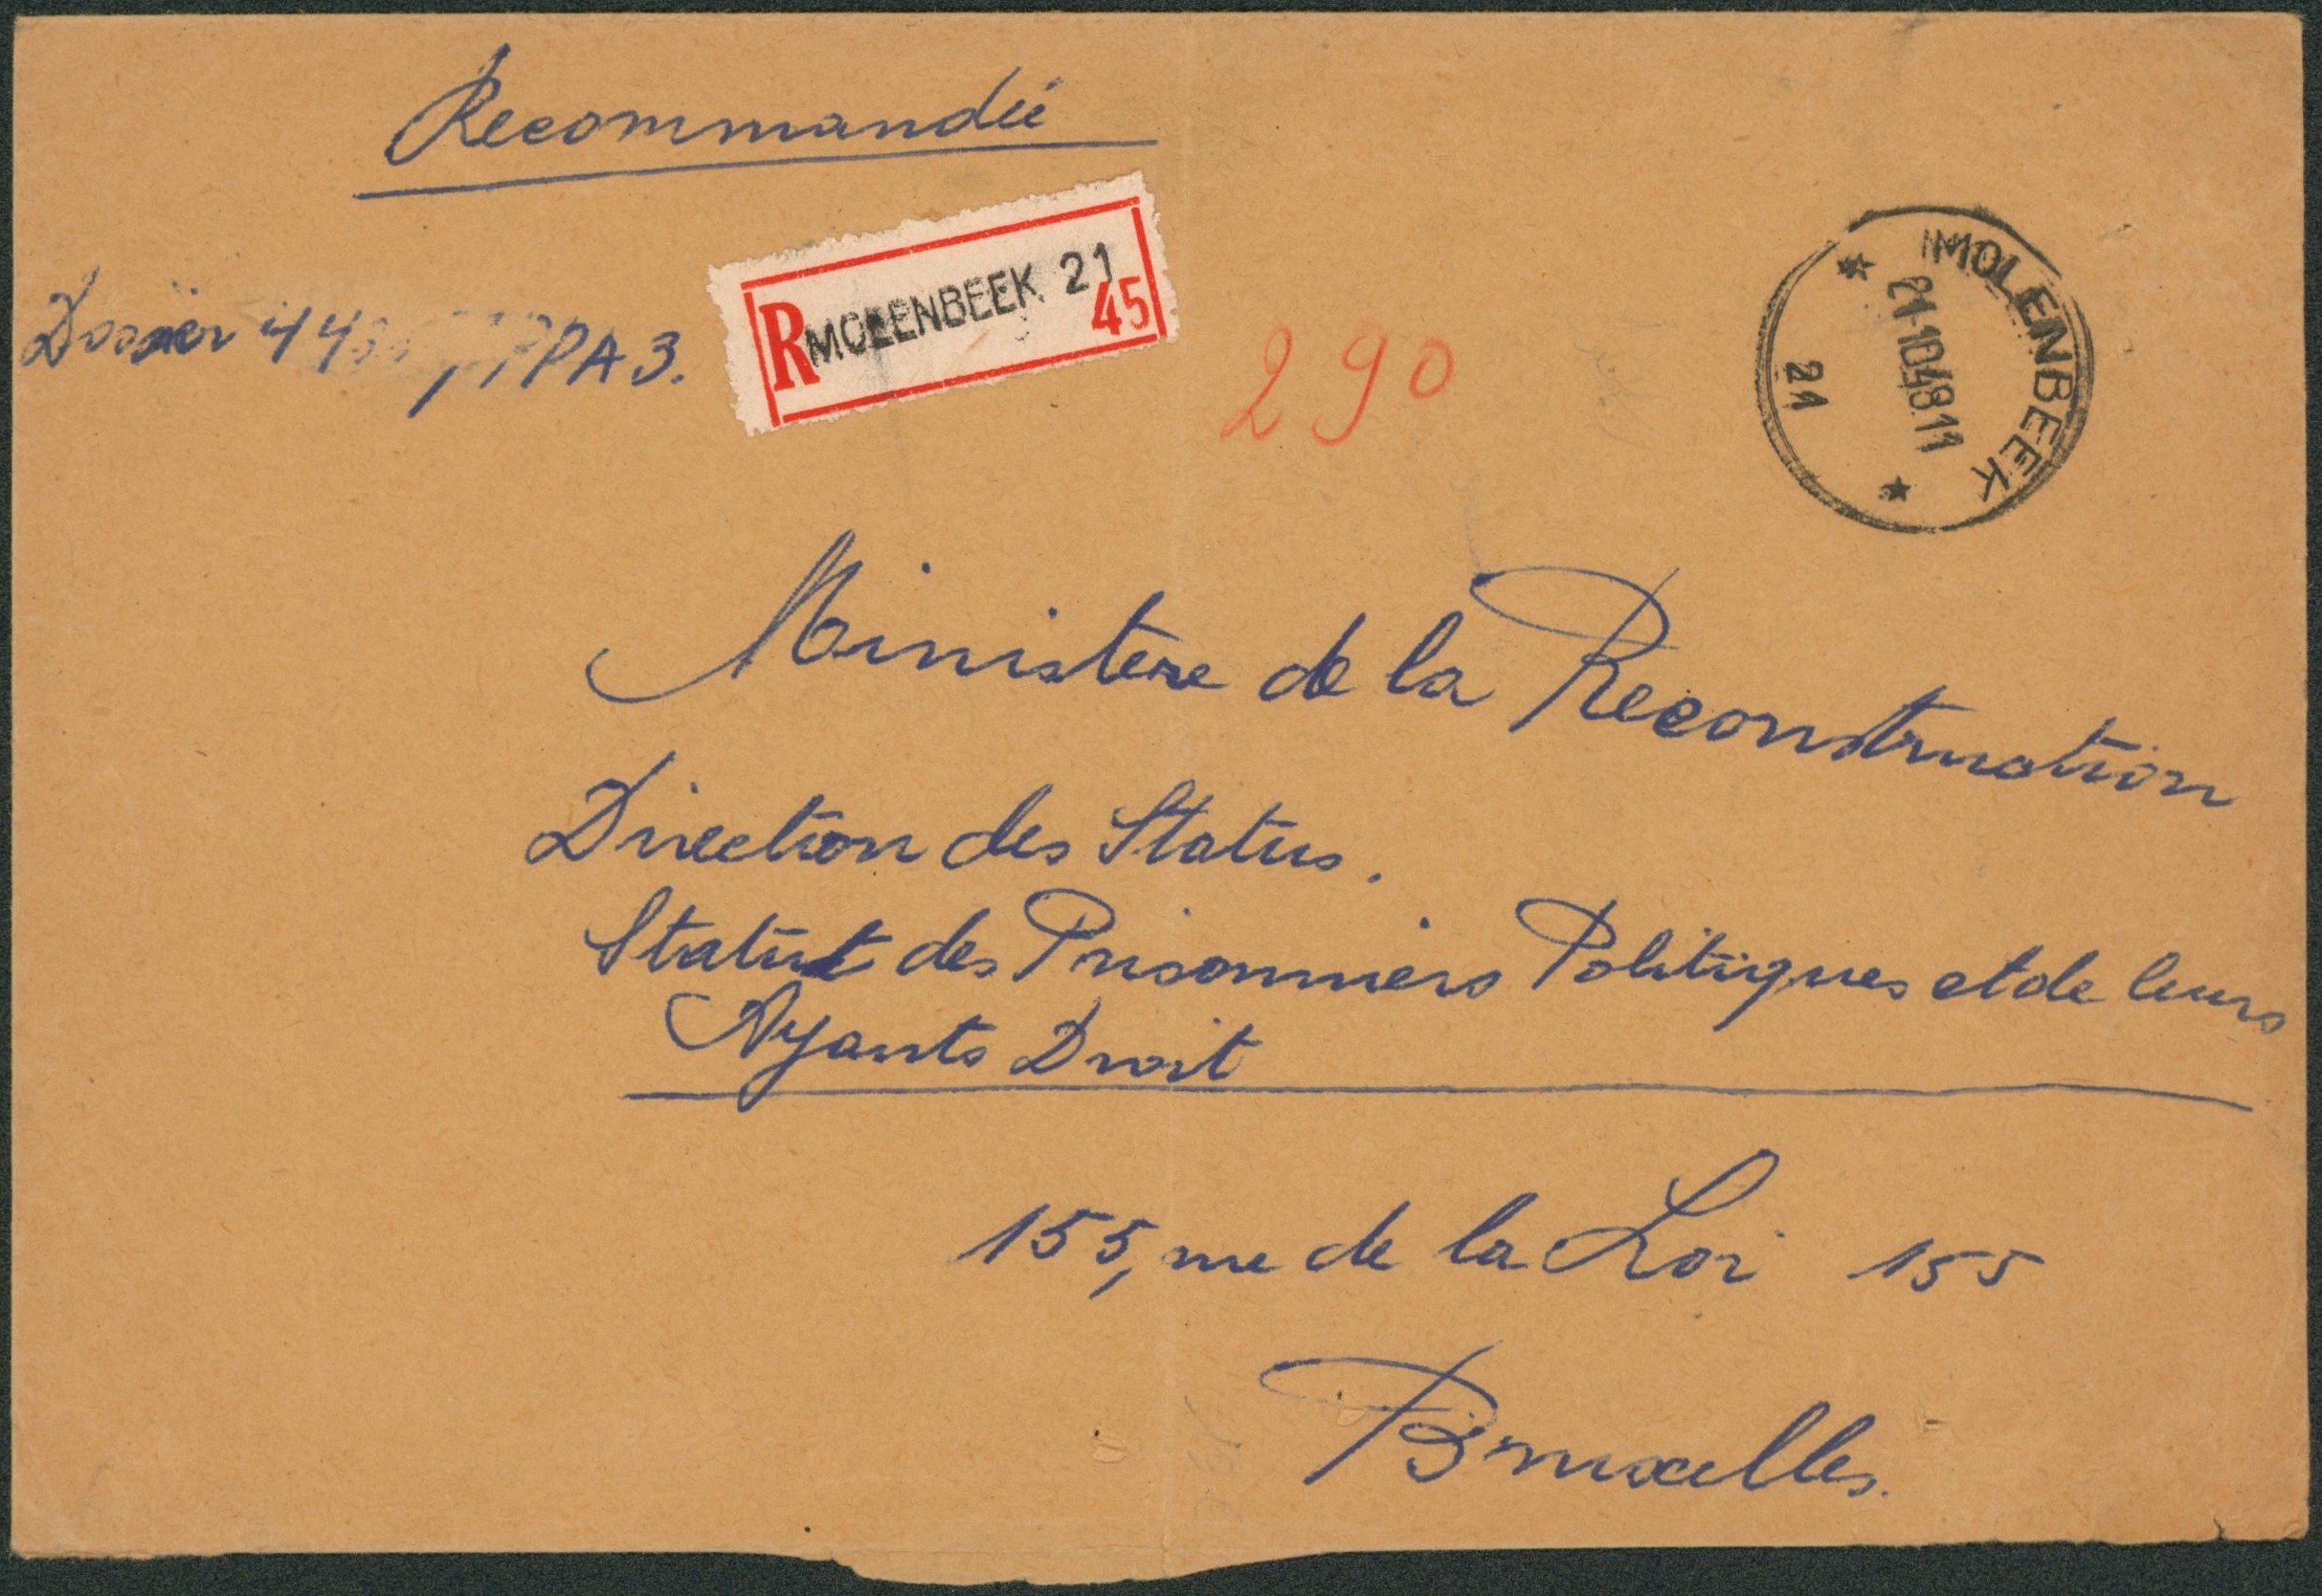 Recommandée
R MOLENBEEK 21
45
Dossier PPA3.
290
MOLENBEEK
21-10 48 11
21
Ministere de la Reconstruction
Direction des Status.
Statut des Prisonniers Politiques et de leurs
Ayants Droit
155, rue de la Loi 155
Bruxelles.